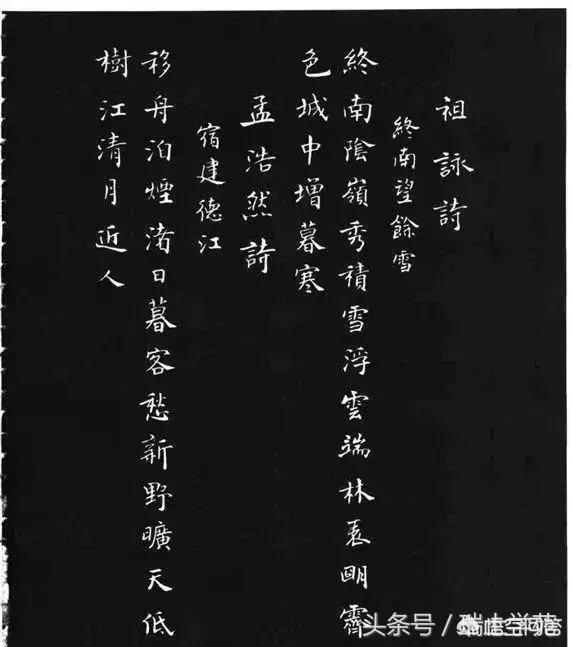 祖詠詩
終南望餘雪
終南陰嶺秀積雪浮雲端林表明霽
色城中增暮寒
孟浩然詩
宿建德江
移舟泊煙渚日暮客愁新野曠天低
樹江清月近人
头条号／
悟空问答